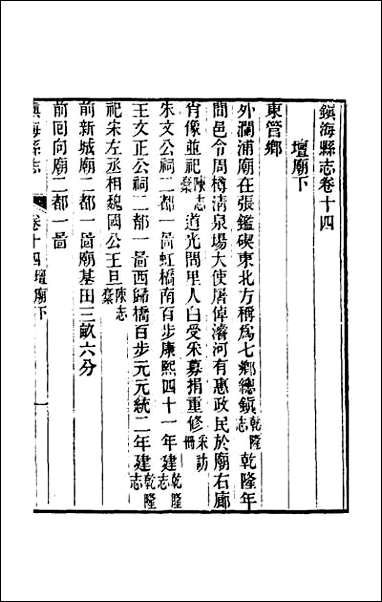 鎮海縣志卷十四
壇廟下
東管鄉
外瀾浦廟在張鑑碶東北方稱為七鄉總鎮乾隆志乾隆年
間邑令周樽淸泉場大使屠倬濬河有惠政民於廟右廊
肖像並祀陳志稾道光間里人白受采募捐重修采訪冊
朱文公祠二都一啚虹橋南百步康熙四十一年建乾隆志
王文正公祠二都一啚西歸橋百步元元統二年建乾隆志
祀宋左丞相魏國公王旦陳志稾
前新城廟二都一啚廟基田三畝六分
前回向廟二都一啚
鎮海縣志
卷十四壇廟下
一